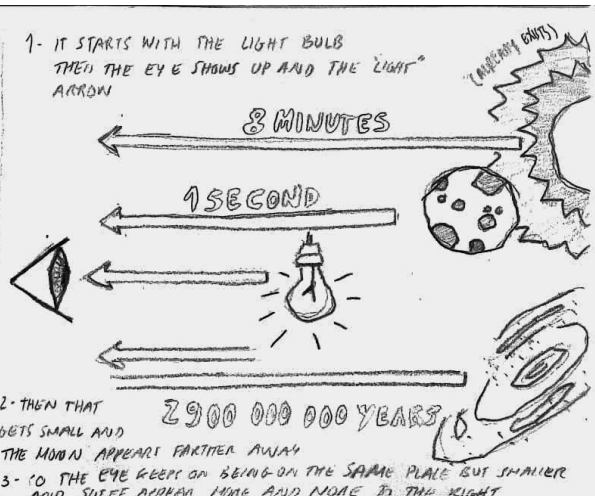 1- IT STARTS WITH THE LIGHT BULB
THEN THE EYE SHOWS UP AND THE "LIGHT"
ARROW
(ALREADY EXISTS)
8 MINUTES
1 SECOND
2900 000 000 YEARS
2- THEN THAT
GETS SMALL AND
THE MOON APPEARS FARTHER AWAY
3- SO THE EYE KEEPS ON BEING ON THE SAME PLACE BUT SMALLER
AND STUFF APPEAR MORE AND MORE TO THE RIGHT